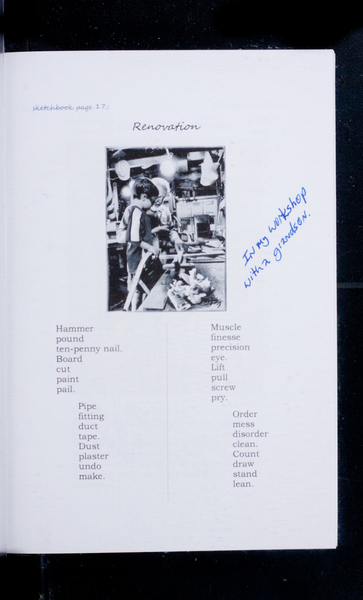 sketchbook page 17:
Renovation
In my workshop
with a grandson.
Hammer
pound
ten-penny nail.
Board
cut
paint
pail.
Pipe
fitting
duct
tape.
Dust
plaster
undo
make.
Muscle
finesse
precision
eye.
Lift
pull
screw
pry.
Order
mess
disorder
clean.
Count
draw
stand
lean.